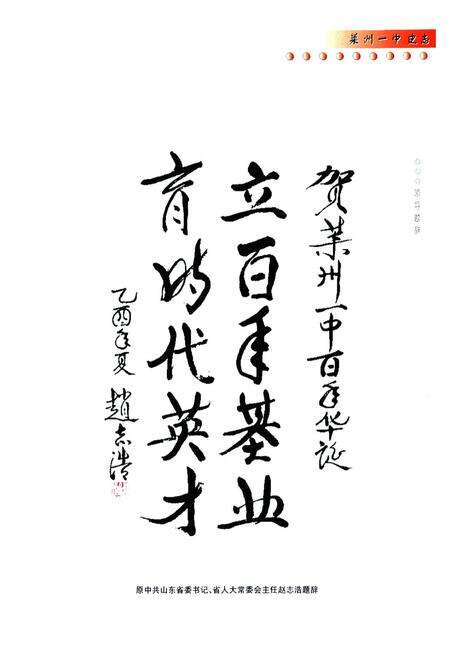 莱州一中史志
贺莱州一中百年华诞
立百年基业
育时代英才
乙酉年夏 趙志浩
原中共山东省委书记、省人大常委会主任赵志浩题辞